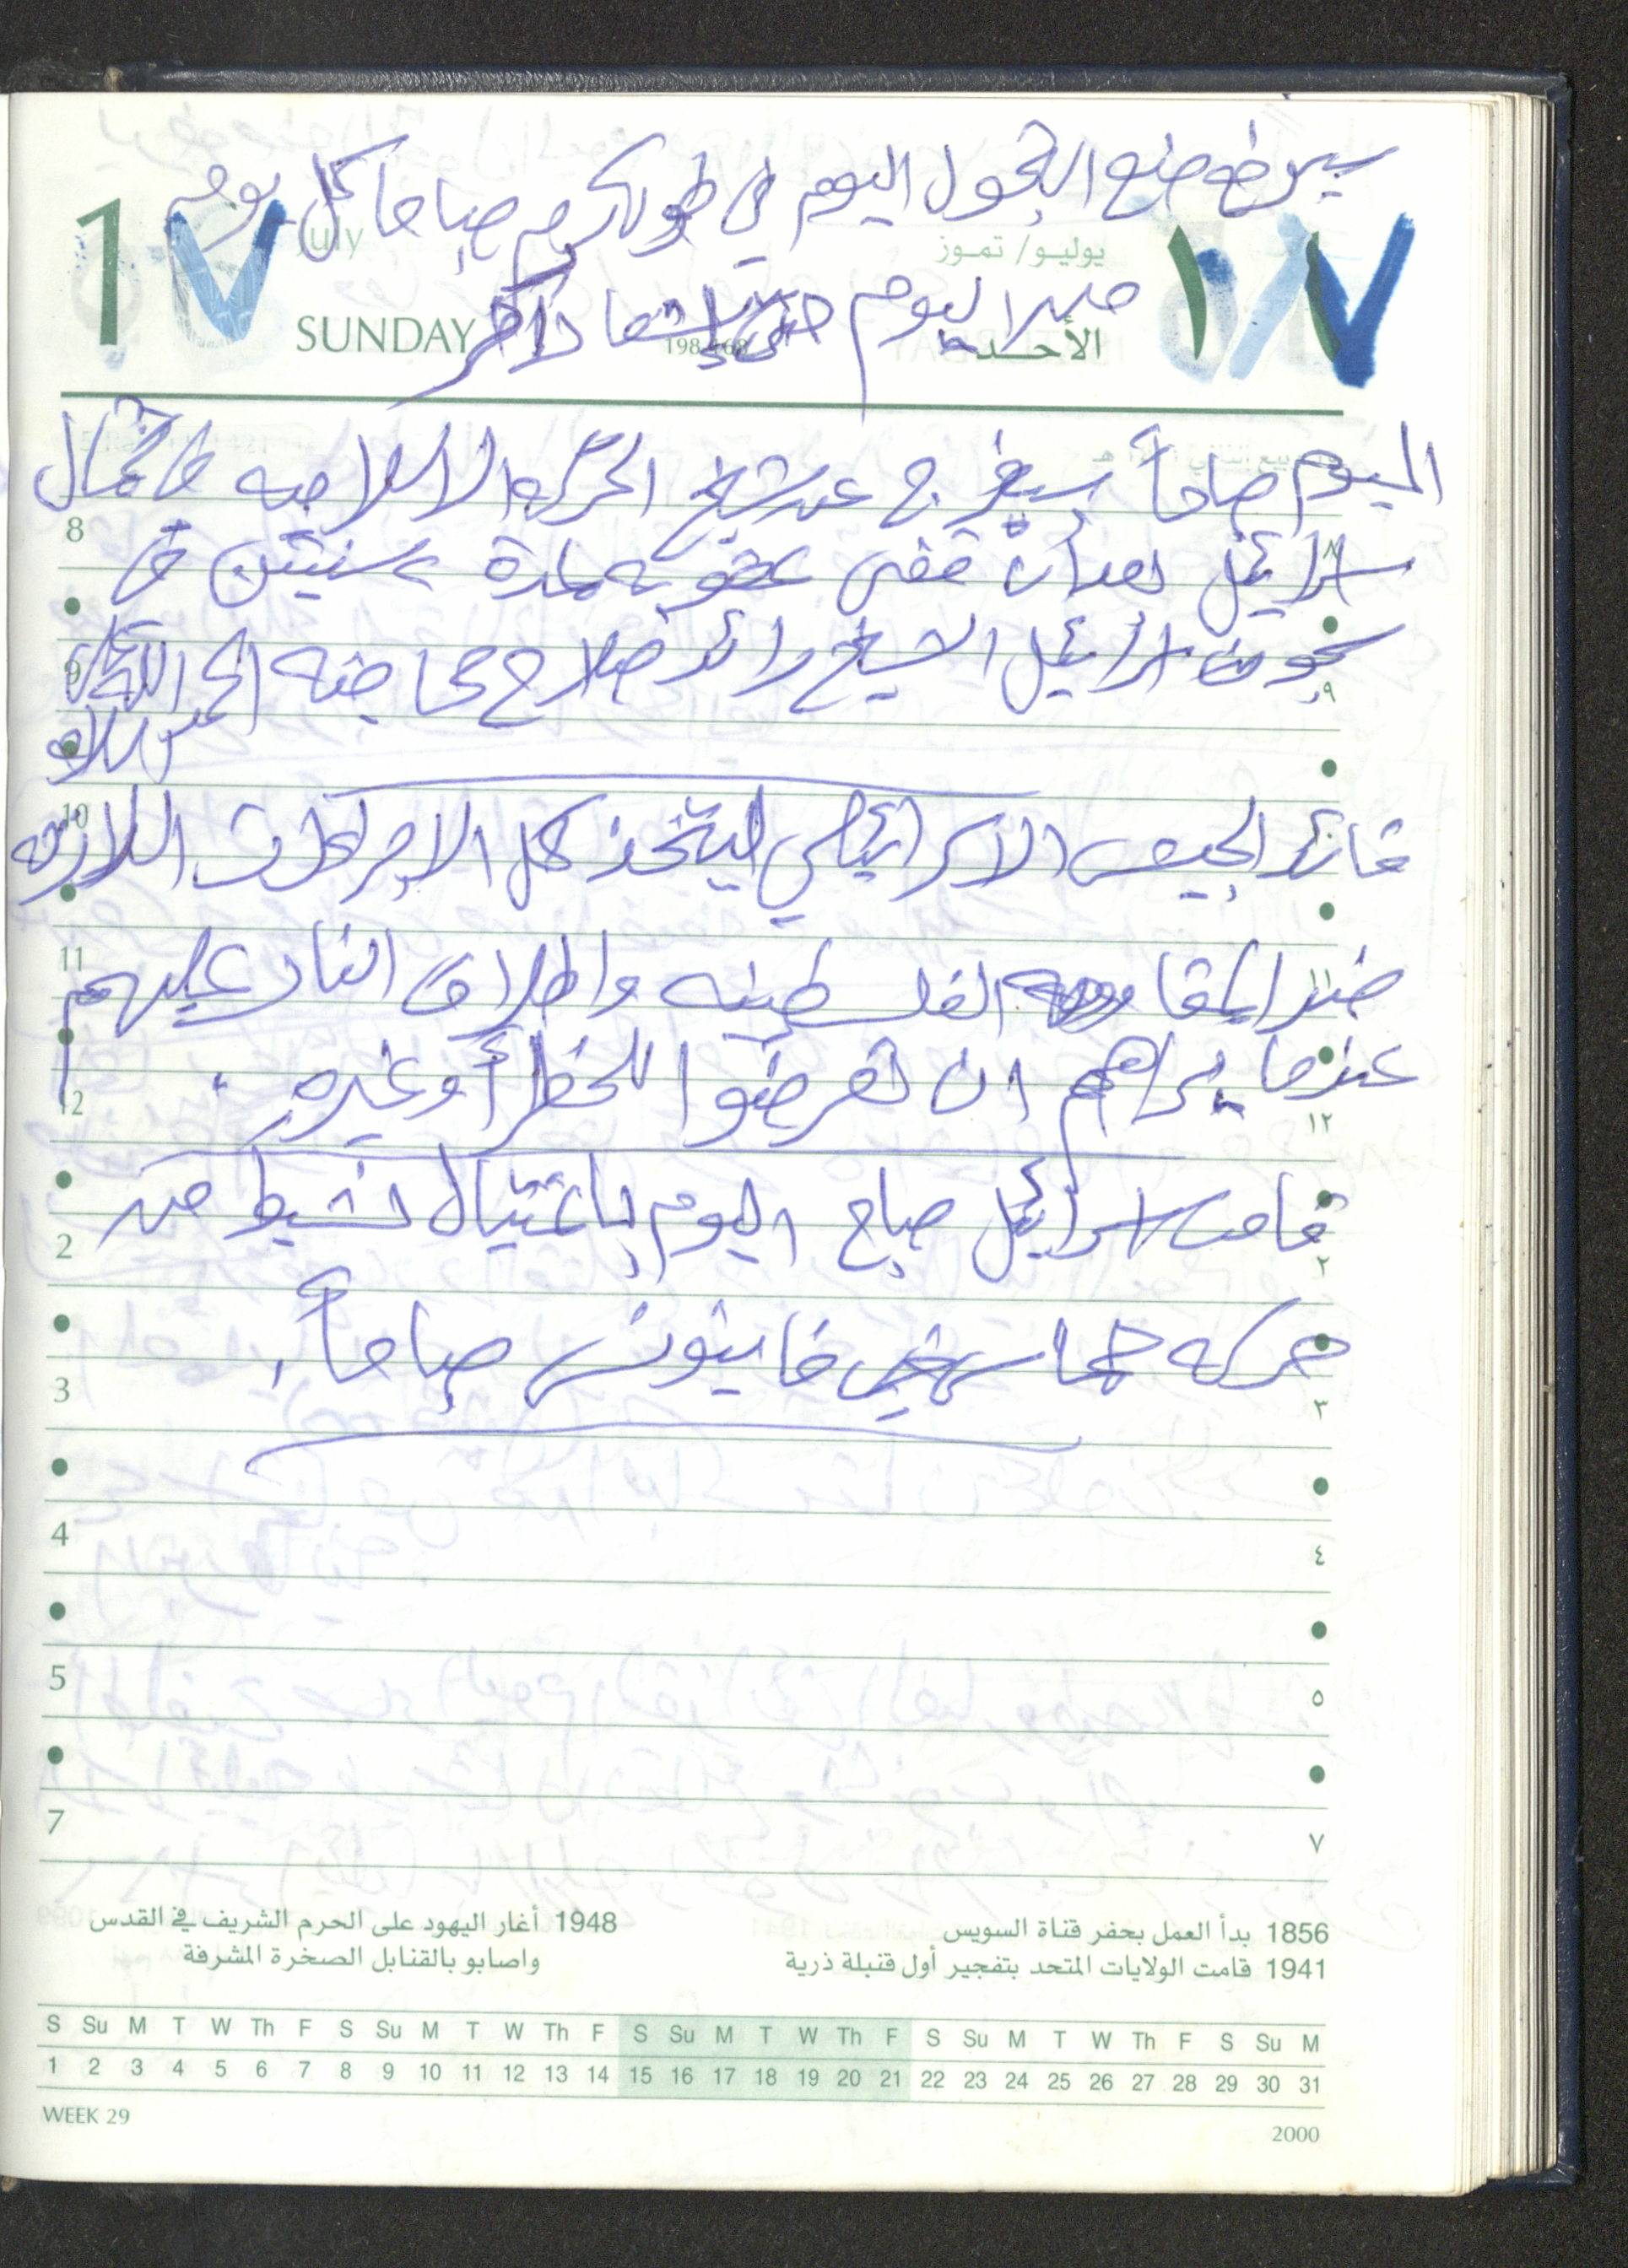 سيرفع منع التجول اليوم في طولكرم صباحا كل يوم
17 July يوليو/ تموز ١٧
من اليوم حتى اشعار اخر
SUNDAY 198-168 الأحد
اليوم صباحاً سيفرج عن شيخ الحركه الاسلاميه في شمال
8 اسرائيل بعد أن قضى عقوبه لمدة سنيتين في ٨
9 سجون اسرائيل الشيخ رائد صلاح محاجنه الحمد الله على ٩
السلامه
10 قائد الجيش الاسرائيلي ليتخذ كل الاجراءات اللازمه
11 ضد المقاومه الفلسطينه واطلاق النار عليهم ١١
12 عندما يراهم ان تعرضوا للخطر أو غيره . ١٢
2 قامت اسرائيل صباح اليوم باغتيال نشيط من ٢
3 حركه حماس في خانيونس صباحاً . ٣
4 ٤
5 ٥
7 ٧
1856 بدأ العمل بحفر قناة السويس 1948 أغار اليهود على الحرم الشريف في القدس
1941 قامت الولايات المتحد بتفجير أول قنبلة ذرية واصابو بالقنابل الصخرة المشرفة
S Su M T W Th F S Su M T W Th F S Su M T W Th F S Su M T W Th F S Su M
1 2 3 4 5 6 7 8 9 10 11 12 13 14 15 16 17 18 19 20 21 22 23 24 25 26 27 28 29 30 31
WEEK 29 2000